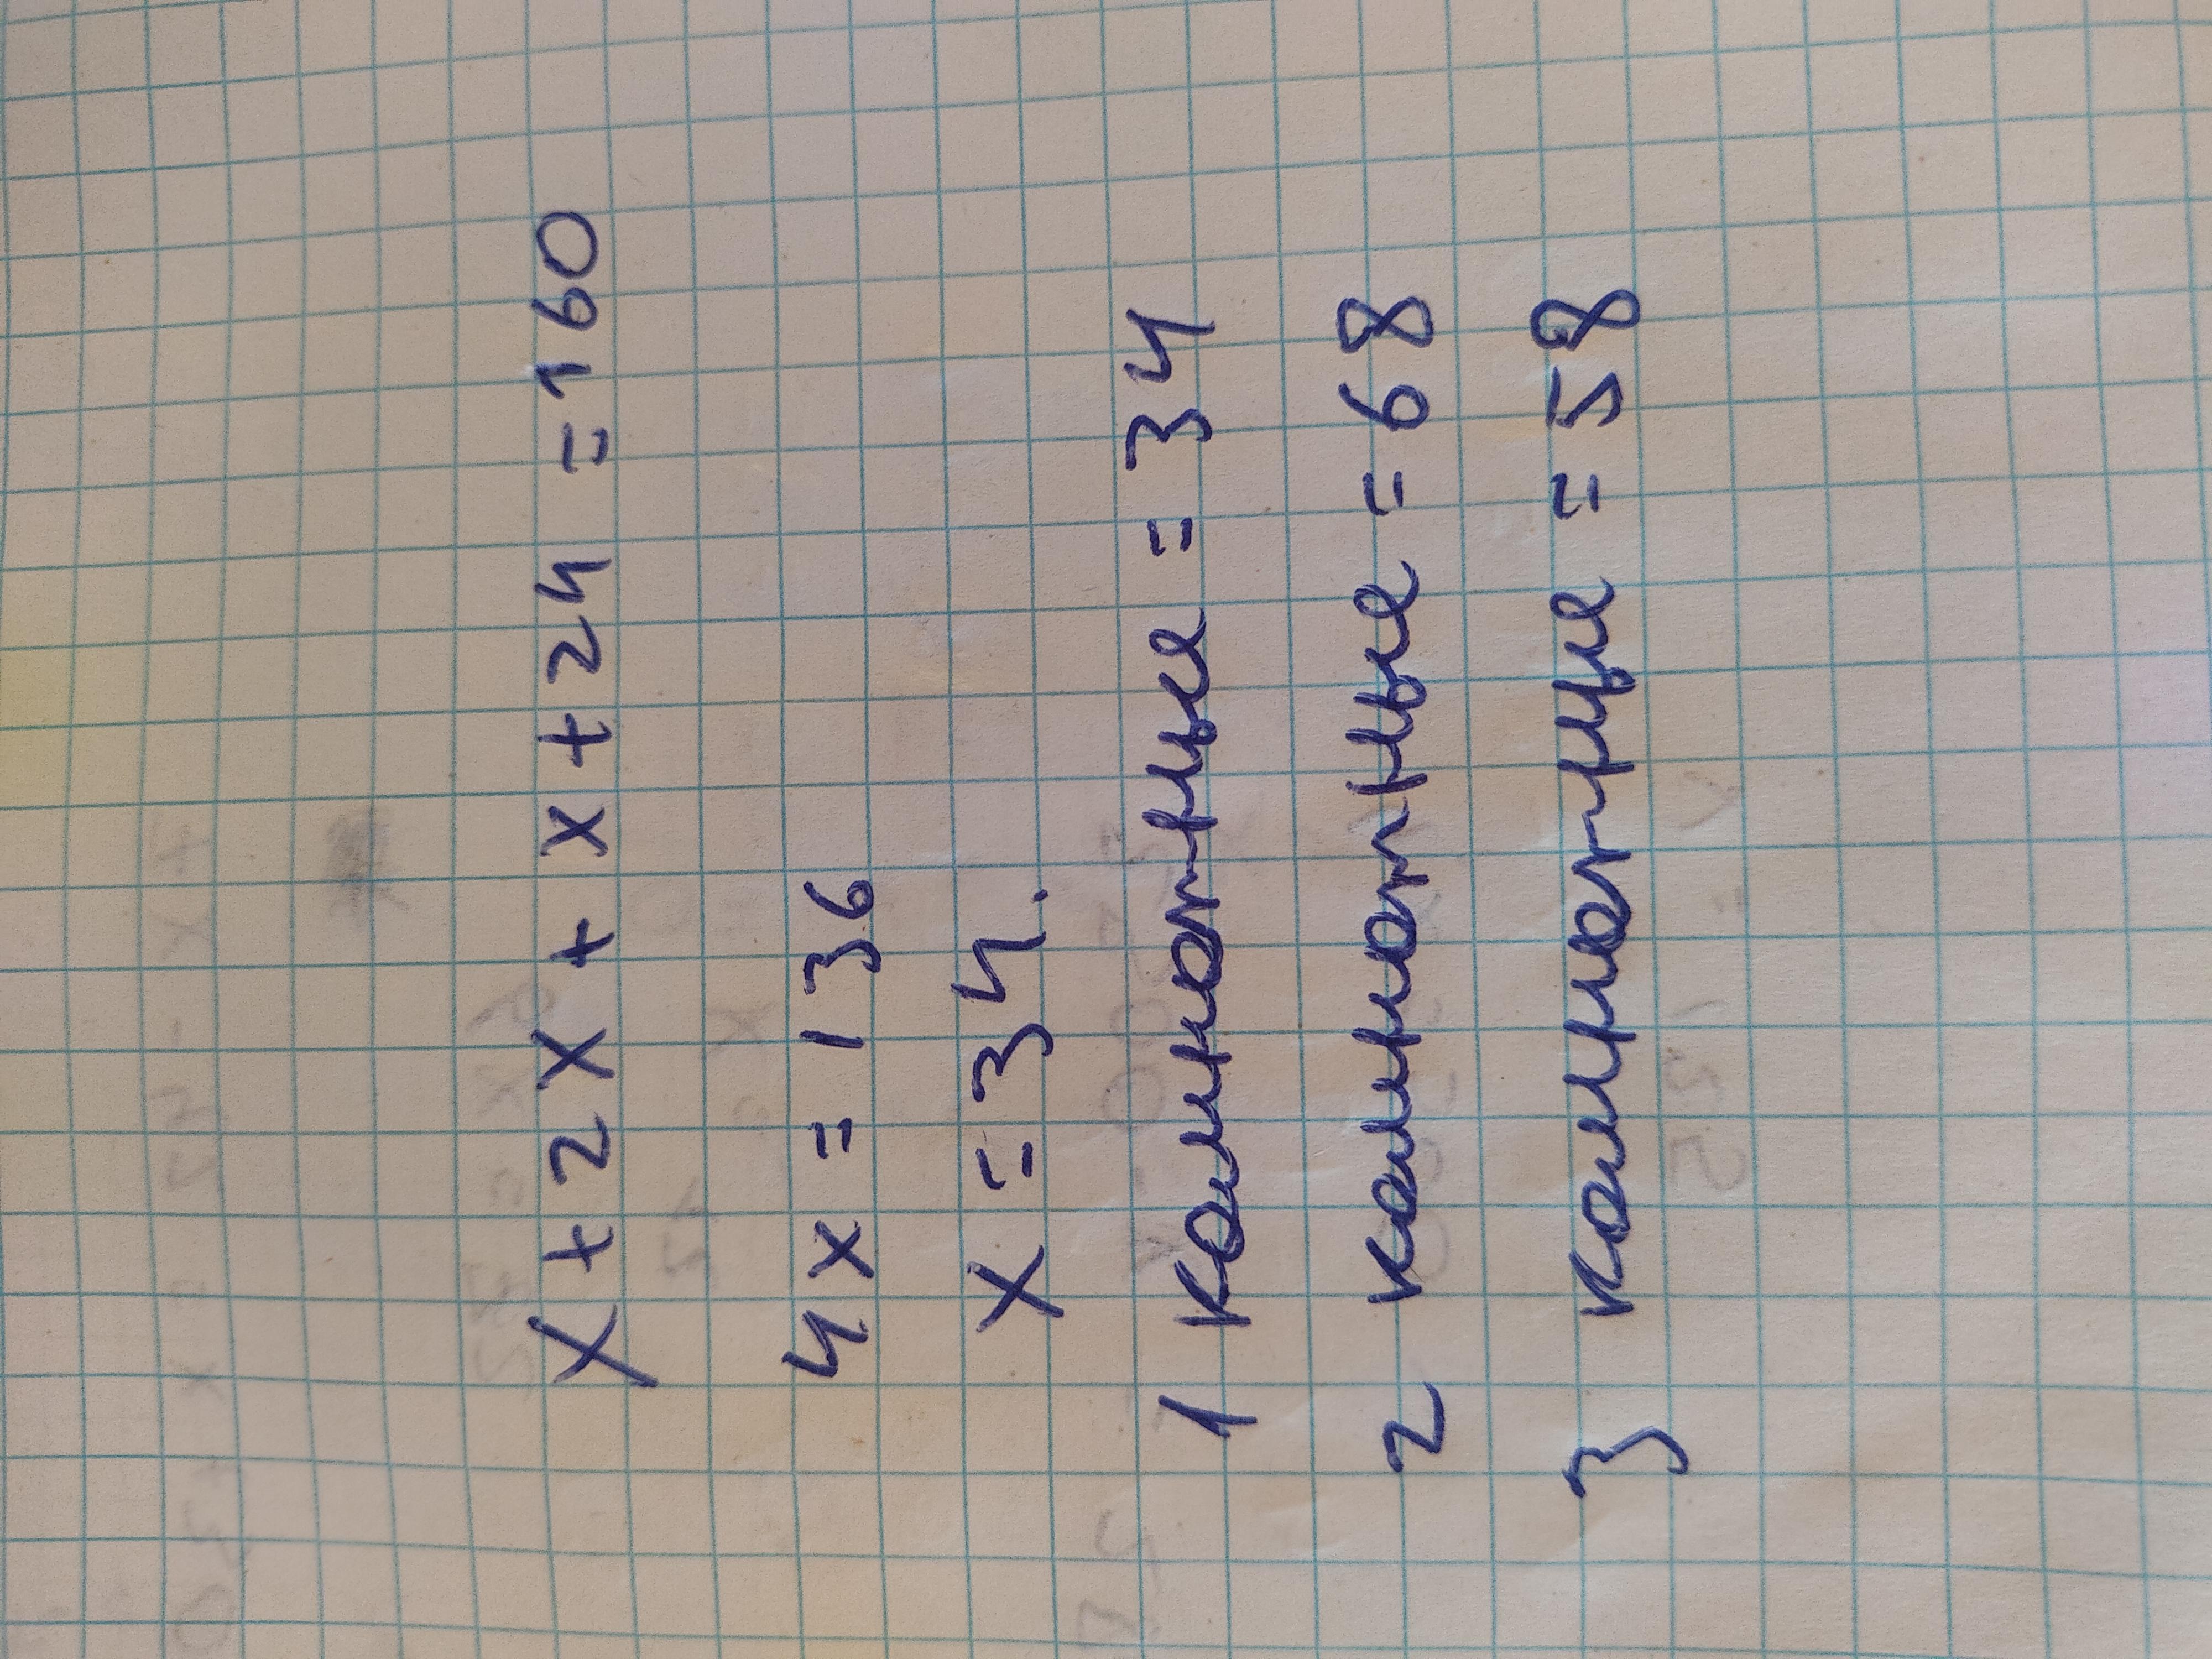 x + 2x + x + 24 = 160
4x = 136
x = 34.
1 комнатные = 34
2 комнатные = 68
3 комнатные = 58